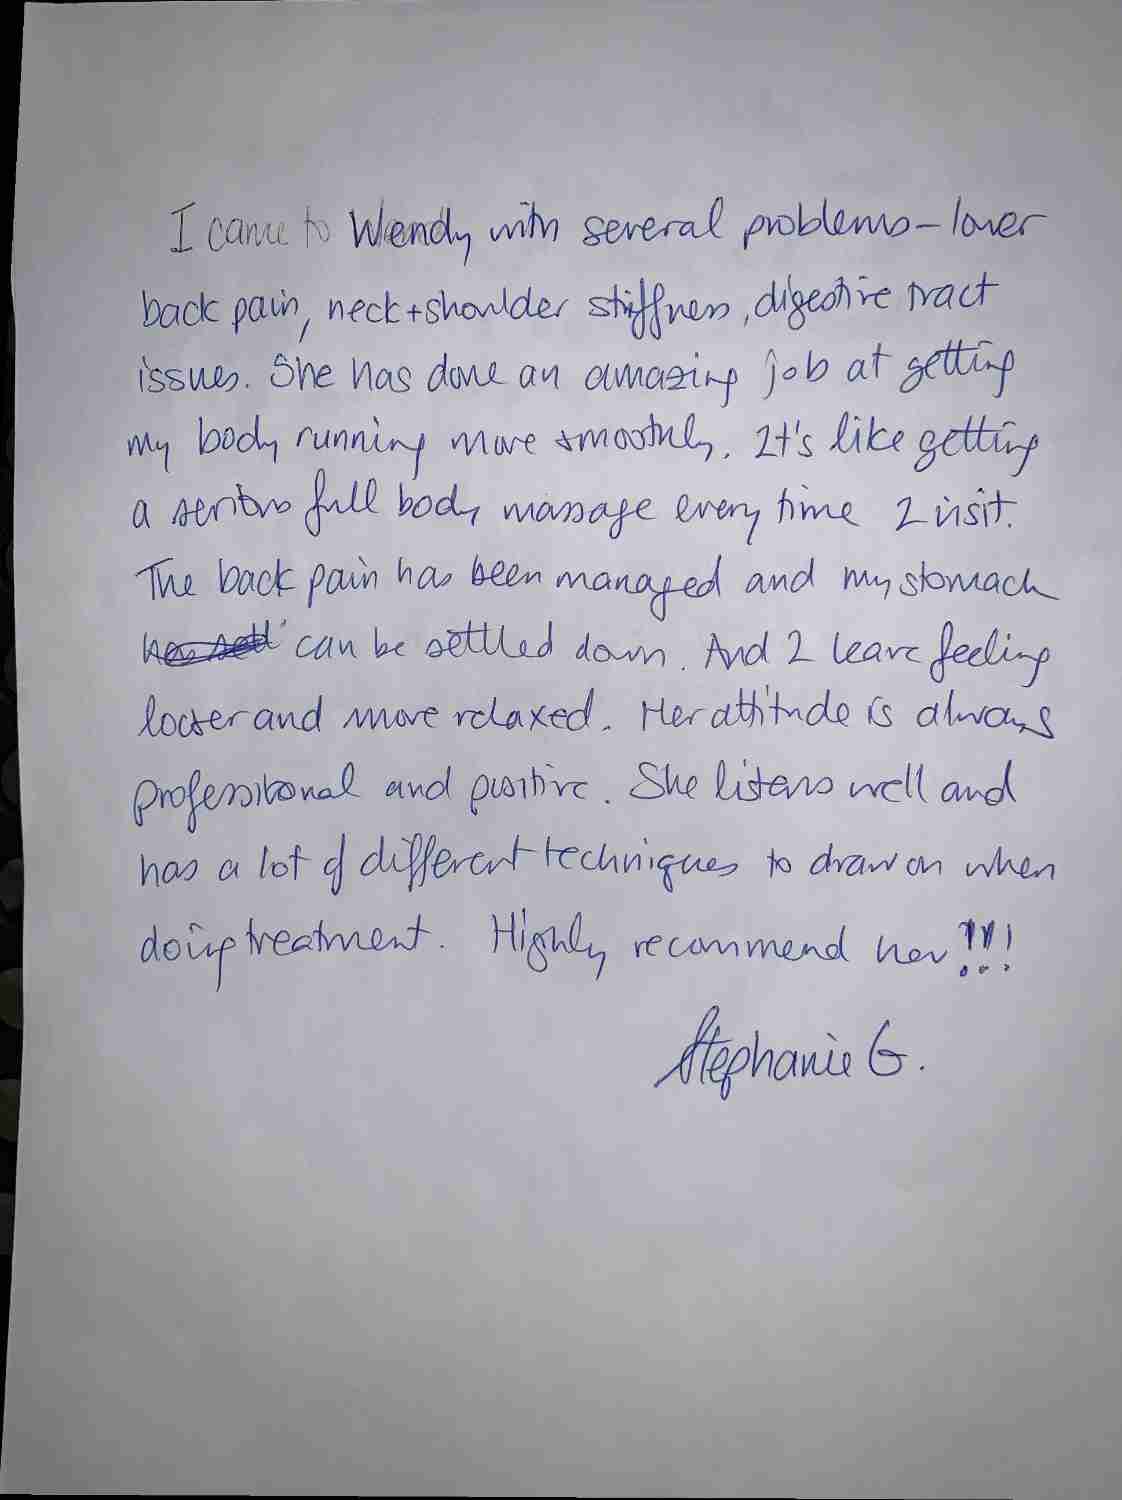 I came to Wendy with several problems – lower
back pain, neck + shoulder stiffness, digestive tract
issues. She has done an amazing job at getting
my body running more smoothly. It's like getting
a serious full body massage every time I visit.
The back pain has been managed and my stomach
can be settled down. And I leave feeling
looser and more relaxed. Her attitude is always
professional and positive. She listens well and
has a lot of different techniques to draw on when
doing treatment. Highly recommend her!!!
Stephanie G.